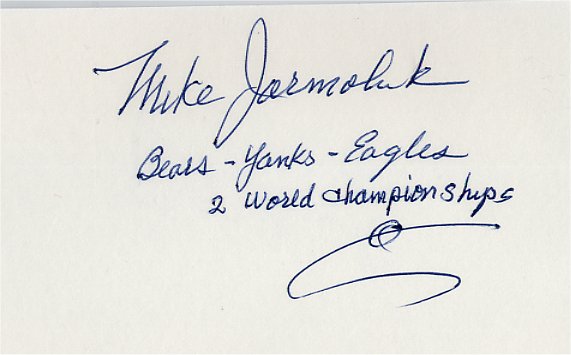 Mike Jarmoluk
Bears - Yanks - Eagles
2 World Championships